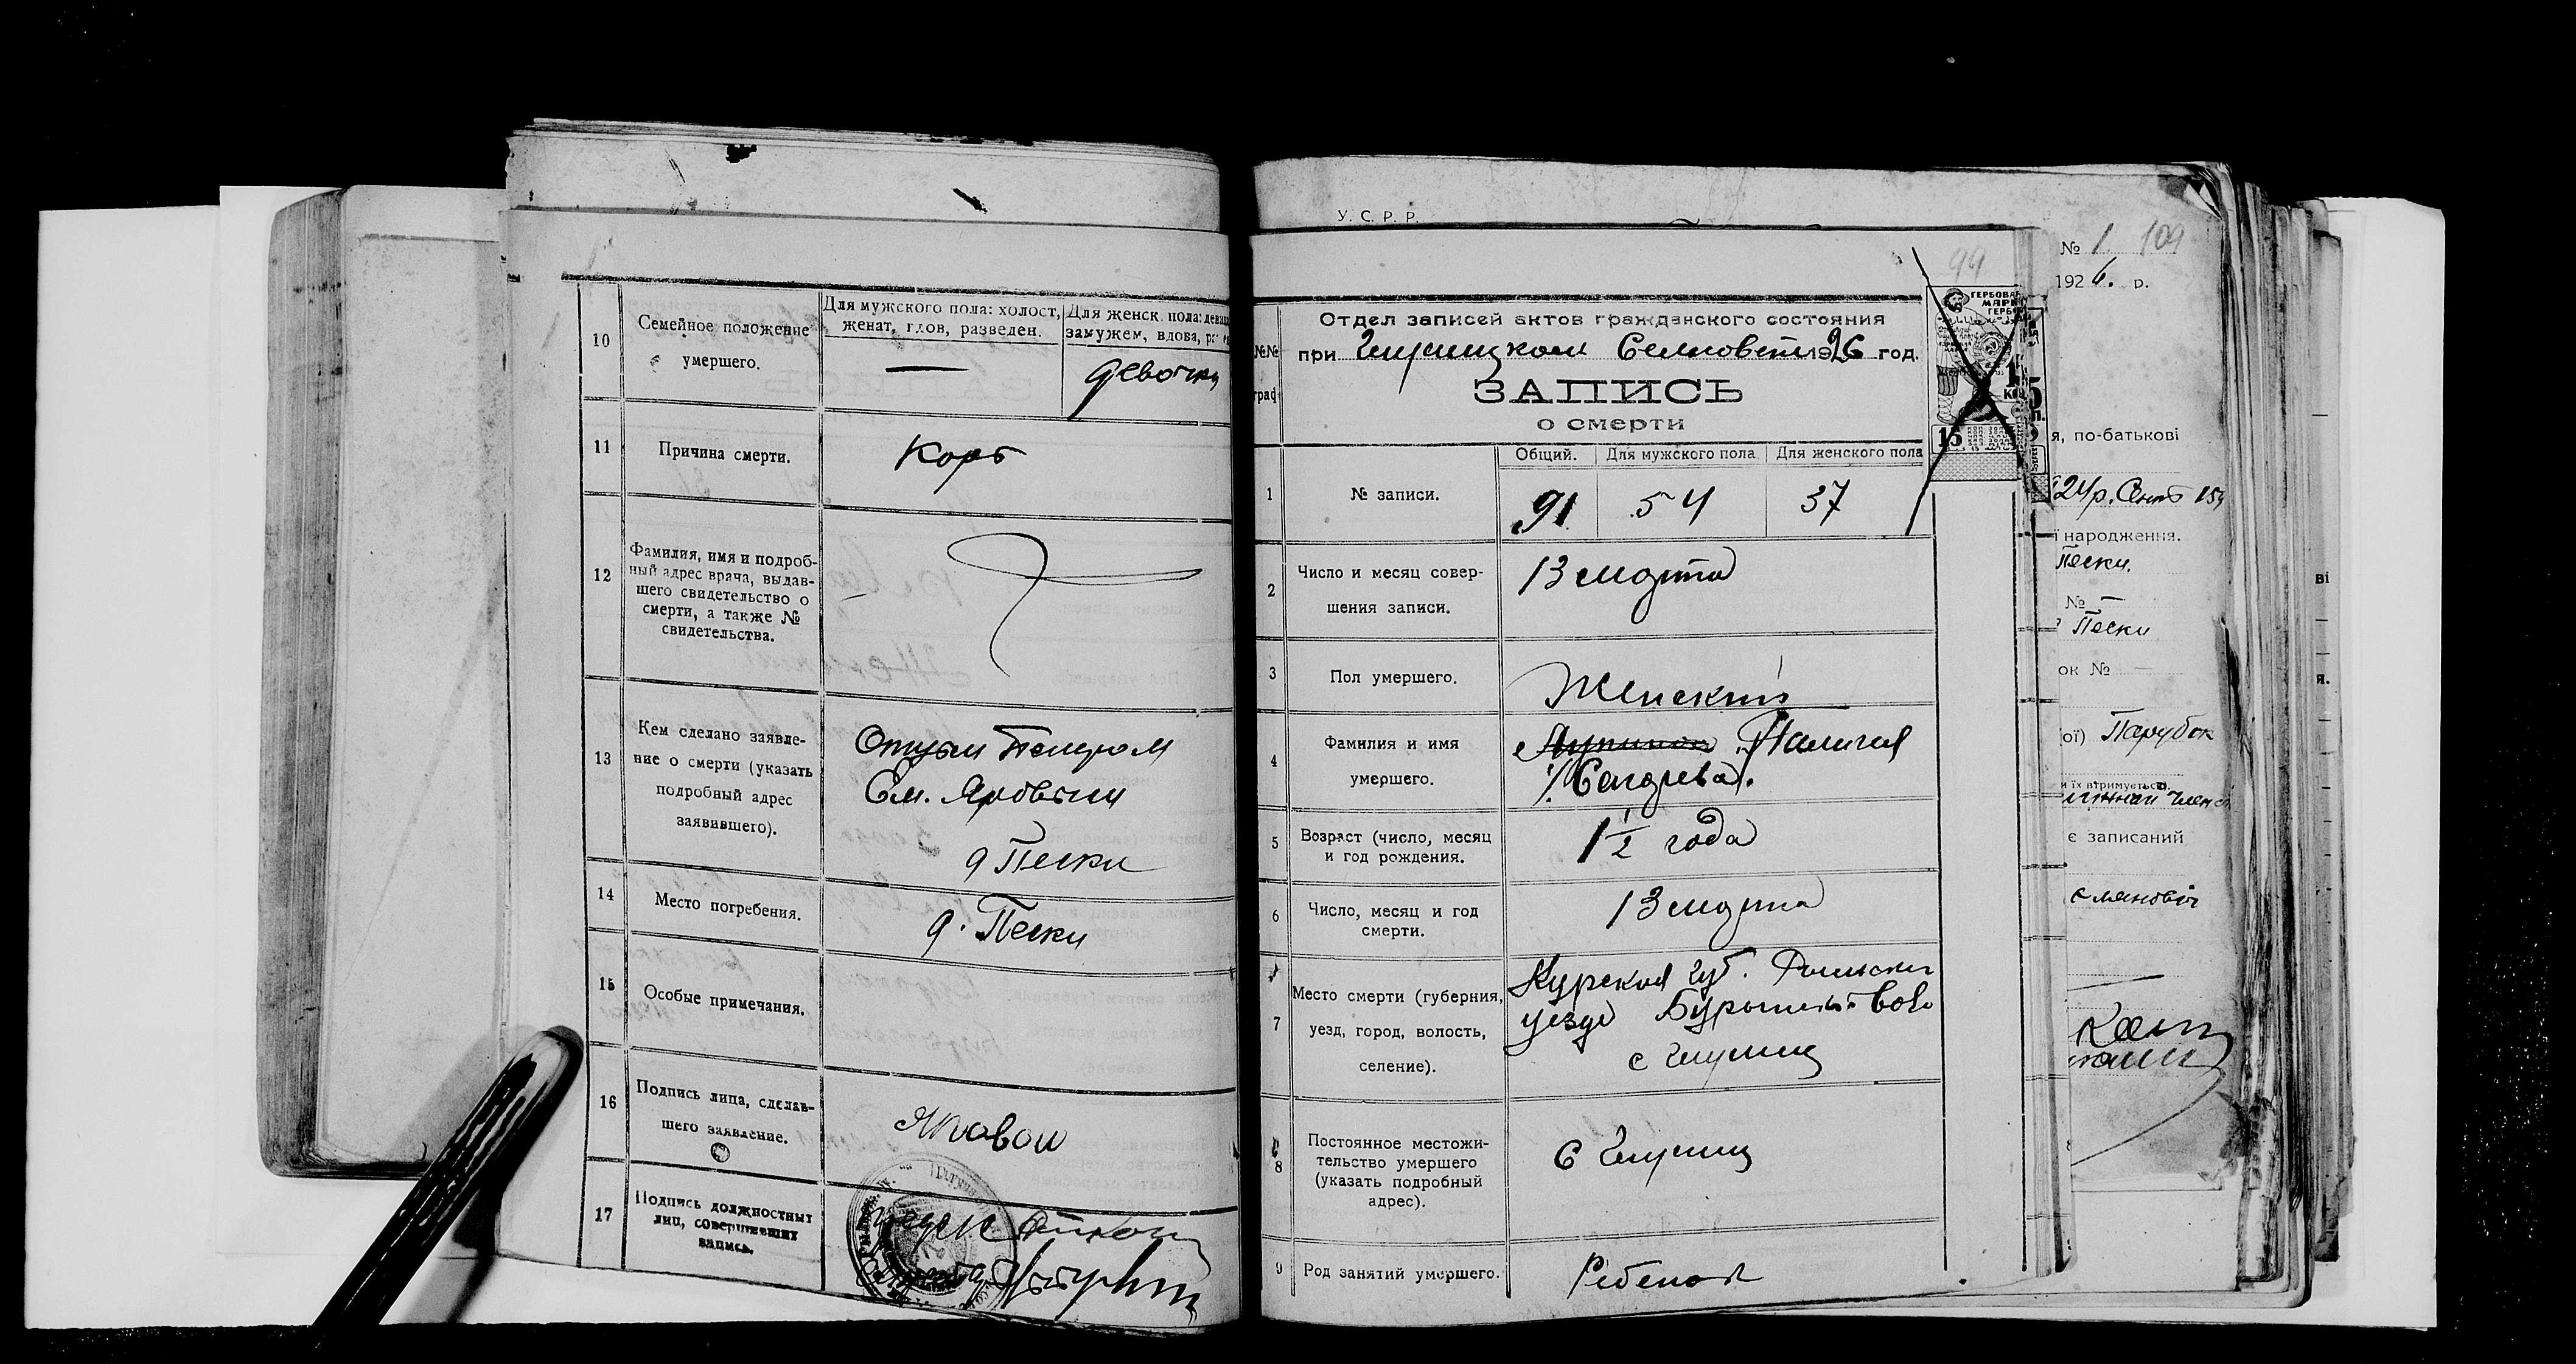 10
Семейное положение
умершего.
Для мужского пола: холост,
женат, вдов, разведен.
Для женск. пола: девица
замужем, вдова,
—
девочка
11
Причина смерти.
Корь
12
Фамилия, имя и подроб-
ный адрес врача, выдав-
шего свидетельство о
смерти, а также №
свидетельства.
13
Кем сделано заявле-
ние о смерти (указать
подробный адрес
заявившего).
Отцом Петром
Ем. Яровым
д Пески
14
Место погребения.
д. Пески
15
Особые примечания.
16
Подпись лица, сделав-
шего заявление.
Яровой
17
Подпись должностных
лиц, совершивших
запись.
У. С. Р. Р.
99
Отдел записей актов гражданского состояния
№№
граф
при Сельсовете 1926 год.
ЗАПИСЬ
о смерти
ГЕРБОВАЯ
МАРКА
15
1
№ записи.
Общий.
Для мужского пола
Для женского пола
91
54
37
2
Число и месяц совер-
шения записи.
13 марта
3
Пол умершего.
Женский
4
Фамилия и имя
умершего.
5
Возраст (число, месяц
и год рождения.
1 1/2 года
6
Число, месяц и год
смерти.
13 марта
7
Место смерти (губерния,
уезд, город, волость,
селение).
Курская губ.
уезда вол
с
8
Постоянное местожи-
тельство умершего
(указать подробный
адрес).
С
9
Род занятий умершего.
Ребенок
№ 1 109
1926. р.
я, по-батькові
24р.
і народження.
Пески.
№ —
Пески
ок №
ої) Парубок
и їх втримується).
є записаний
ві
я.